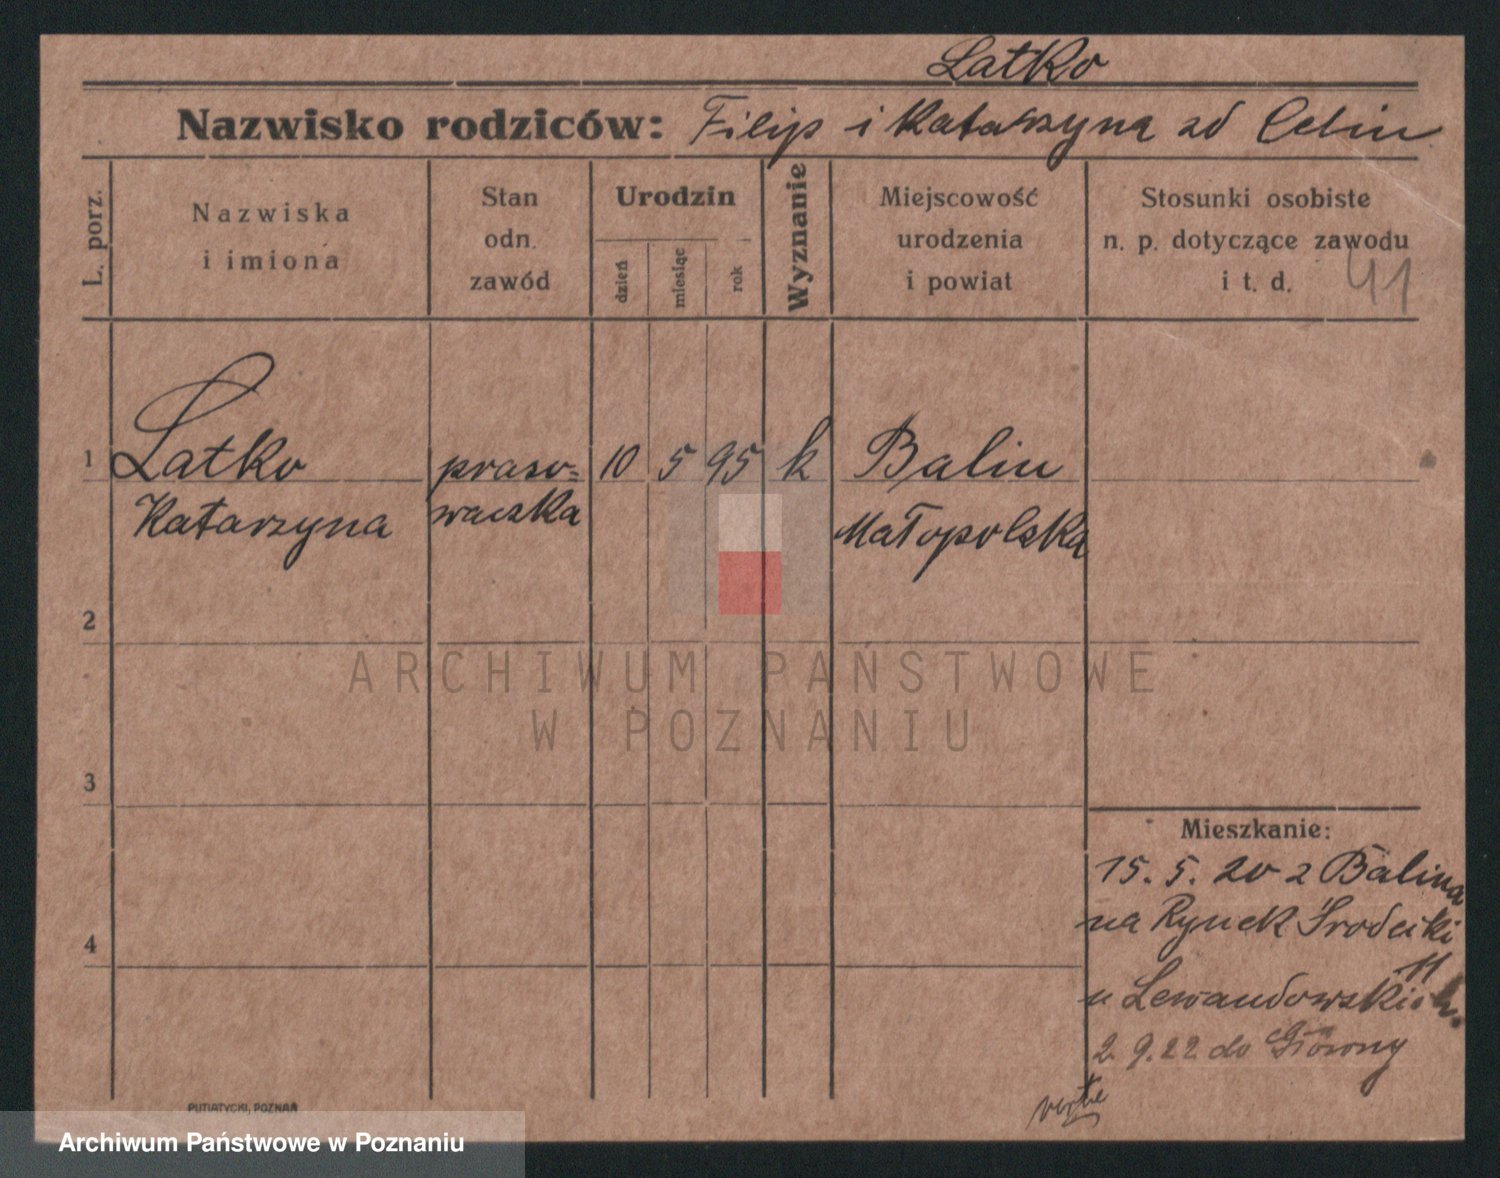 Latko
Nazwisko rodziców: Filip i Katarzyna zd Celin
L. porz.
Nazwiska
i imiona
Stan
odn.
zawód
Urodzin
dzień
miesiąc
rok
Wyznanie
Miejscowość
urodzenia
i powiat
Stosunki osobiste
n. p. dotyczące zawodu
i t. d.
41
1 Latko praso= 10 5 95 k Balin
Katarzyna waczka Małopolska
2
3
4
ARCHIWUM PAŃSTWOWE
W POZNANIU
Mieszkanie:
15. 5. 20 z Balina
na Rynek Śródecki
11
u Lewandowskich.
2. 9. 22 do Główny
verte
PUTIATYCKI, POZNAŃ
Archiwum Państwowe w Poznaniu